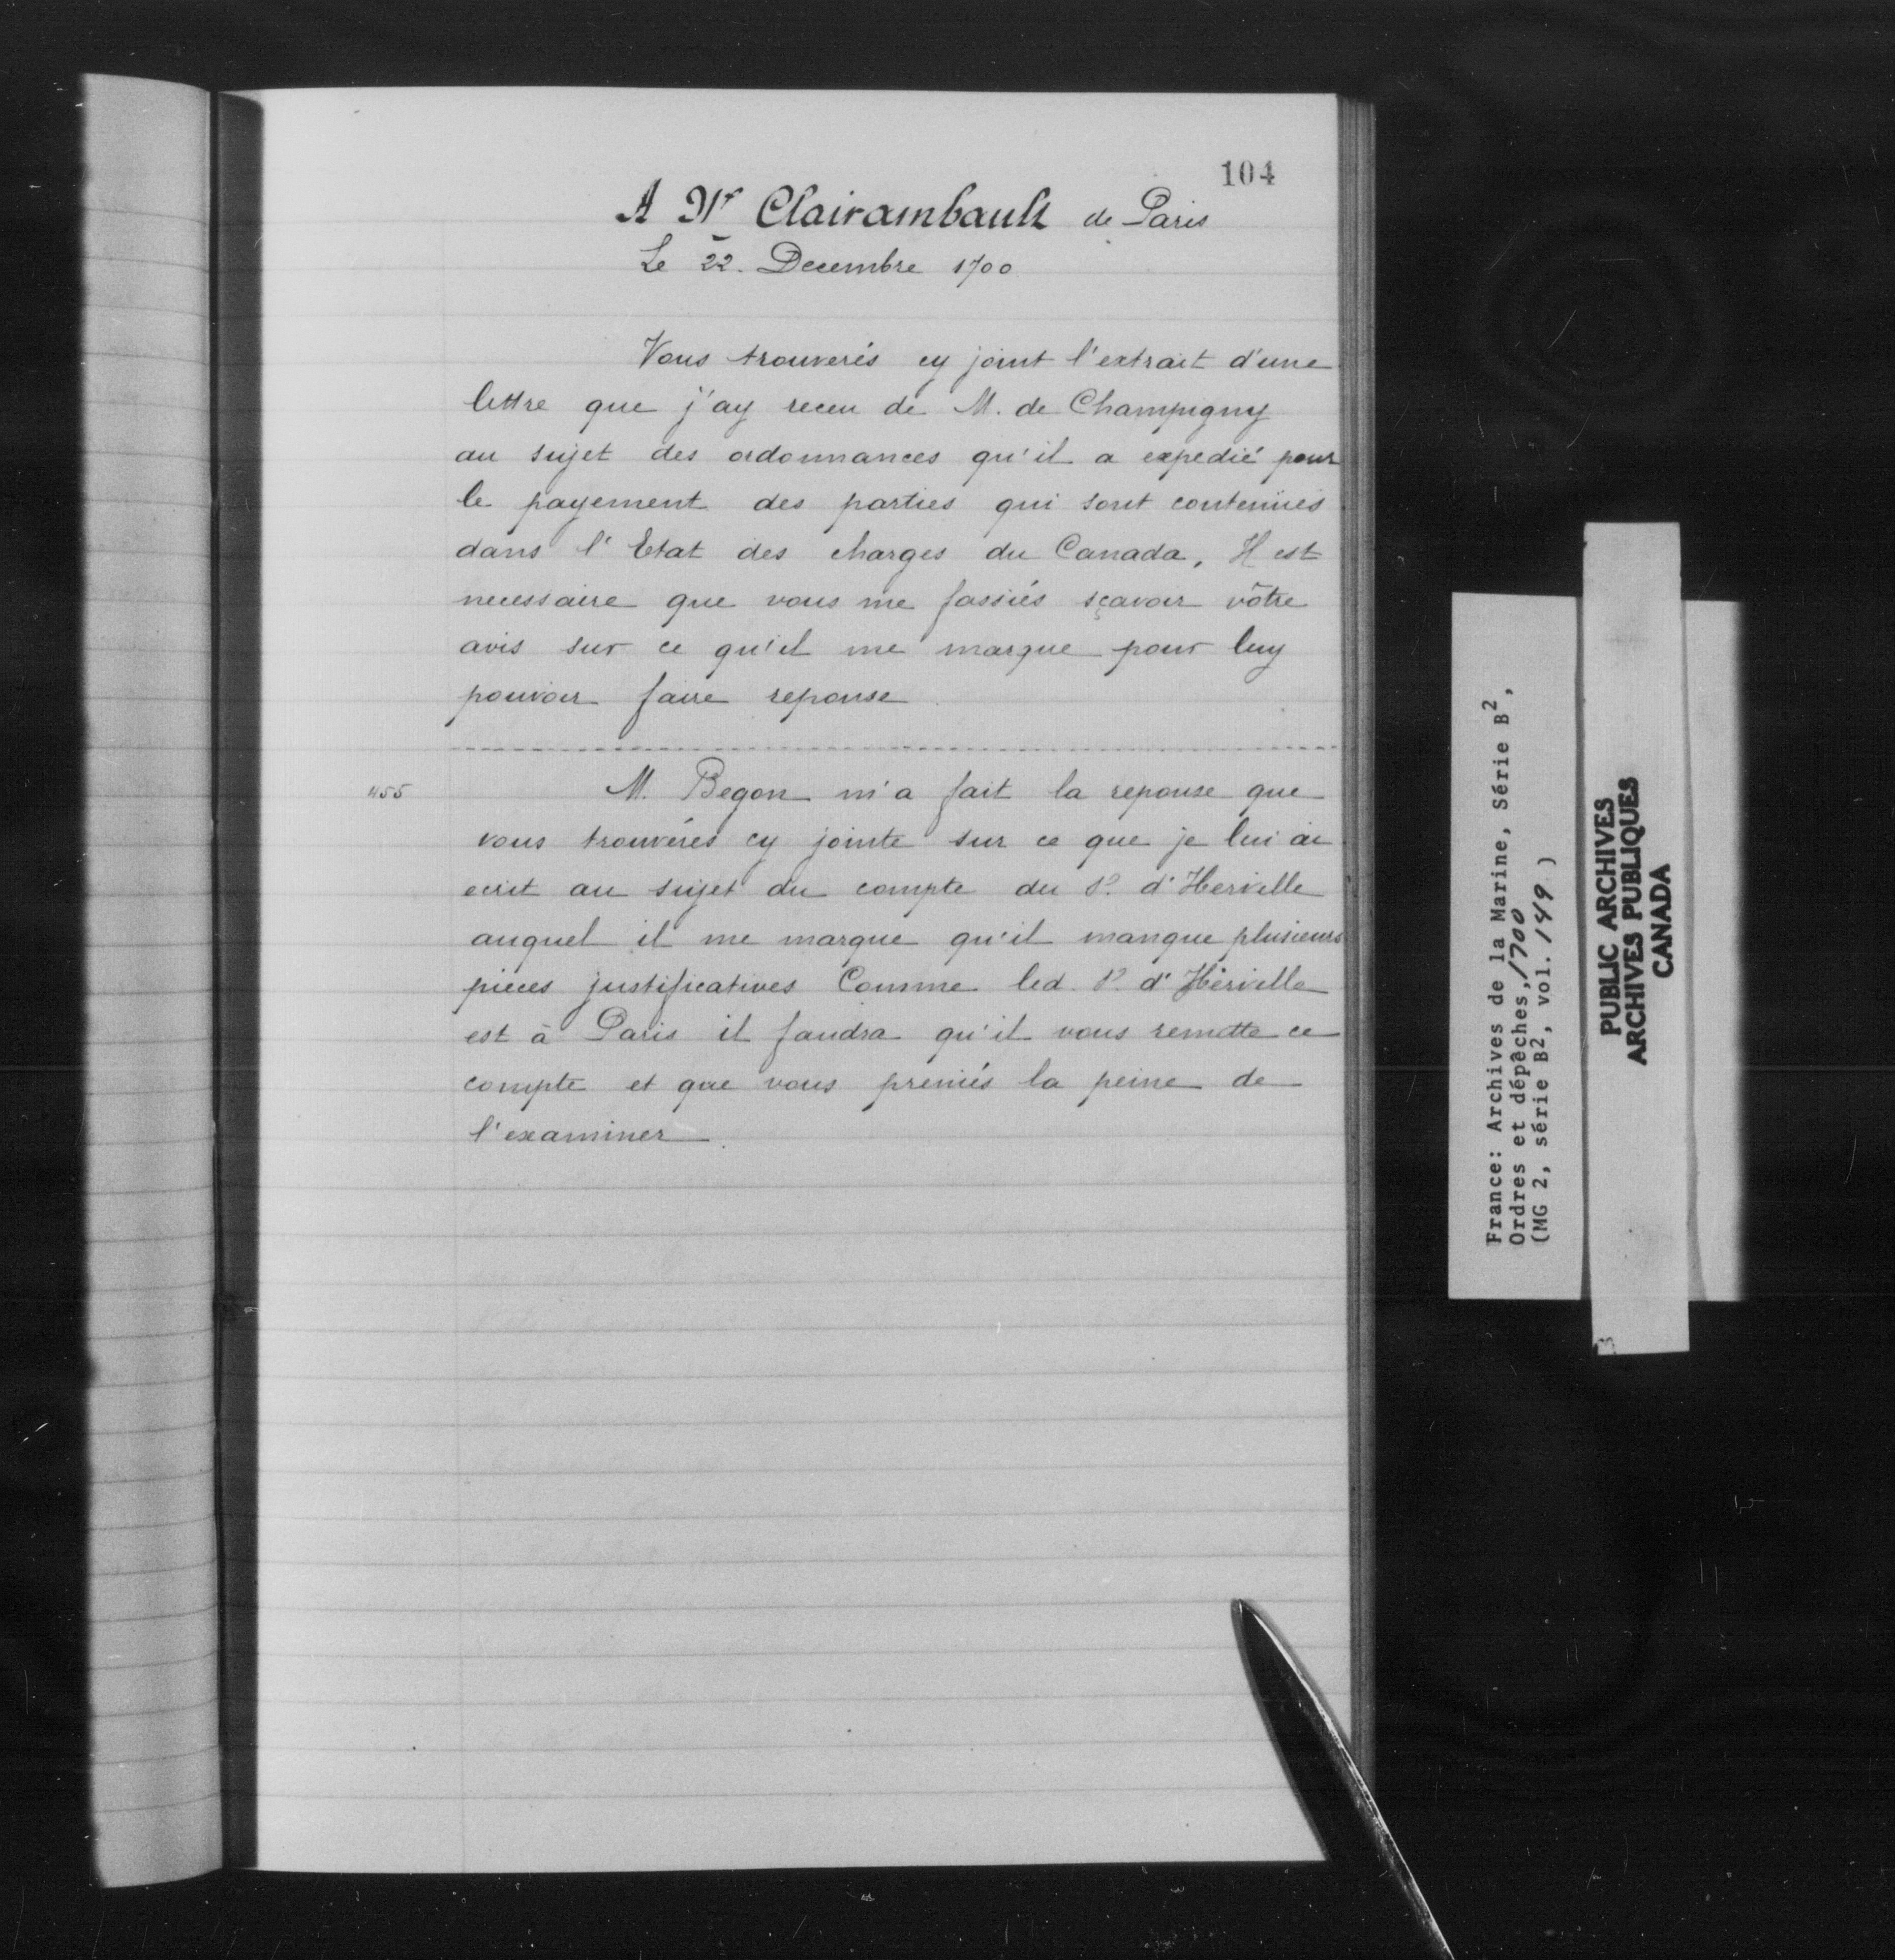 104
A Mr Clairambault de Paris
Le 22. Decembre 1700
Vous trouverés cy joint l'extrait d'une
lettre que j'ay receu de M. de Champigny
au sujet des ordonnances qu'il a expedié pour
le payement des parties qui sont contenües
dans l'Etat des charges du Canada, Il est
necessaire que vous me fassiés sçavoir vôtre
avis sur ce qu'il me marque pour luy
pouvoir faire reponse.
455
M. Begon m'a fait la reponse que
vous trouvérés cy jointe sur ce que je lui ai
ecrit au sujet du compte du Sr. d'Herville
auquel il me marque qu'il manque plusieurs
pièces justificatives Comme led. Sr. d'Herville
est à Paris il faudra qu'il vous remette ce
compte et que vous preniés la peine de
l'examiner.
France: Archives de la Marine, Série B2,
Ordres et dépêches, 1700
(MG 2, série B2, vol. 149 )
PUBLIC ARCHIVES
ARCHIVES PUBLIQUES
CANADA